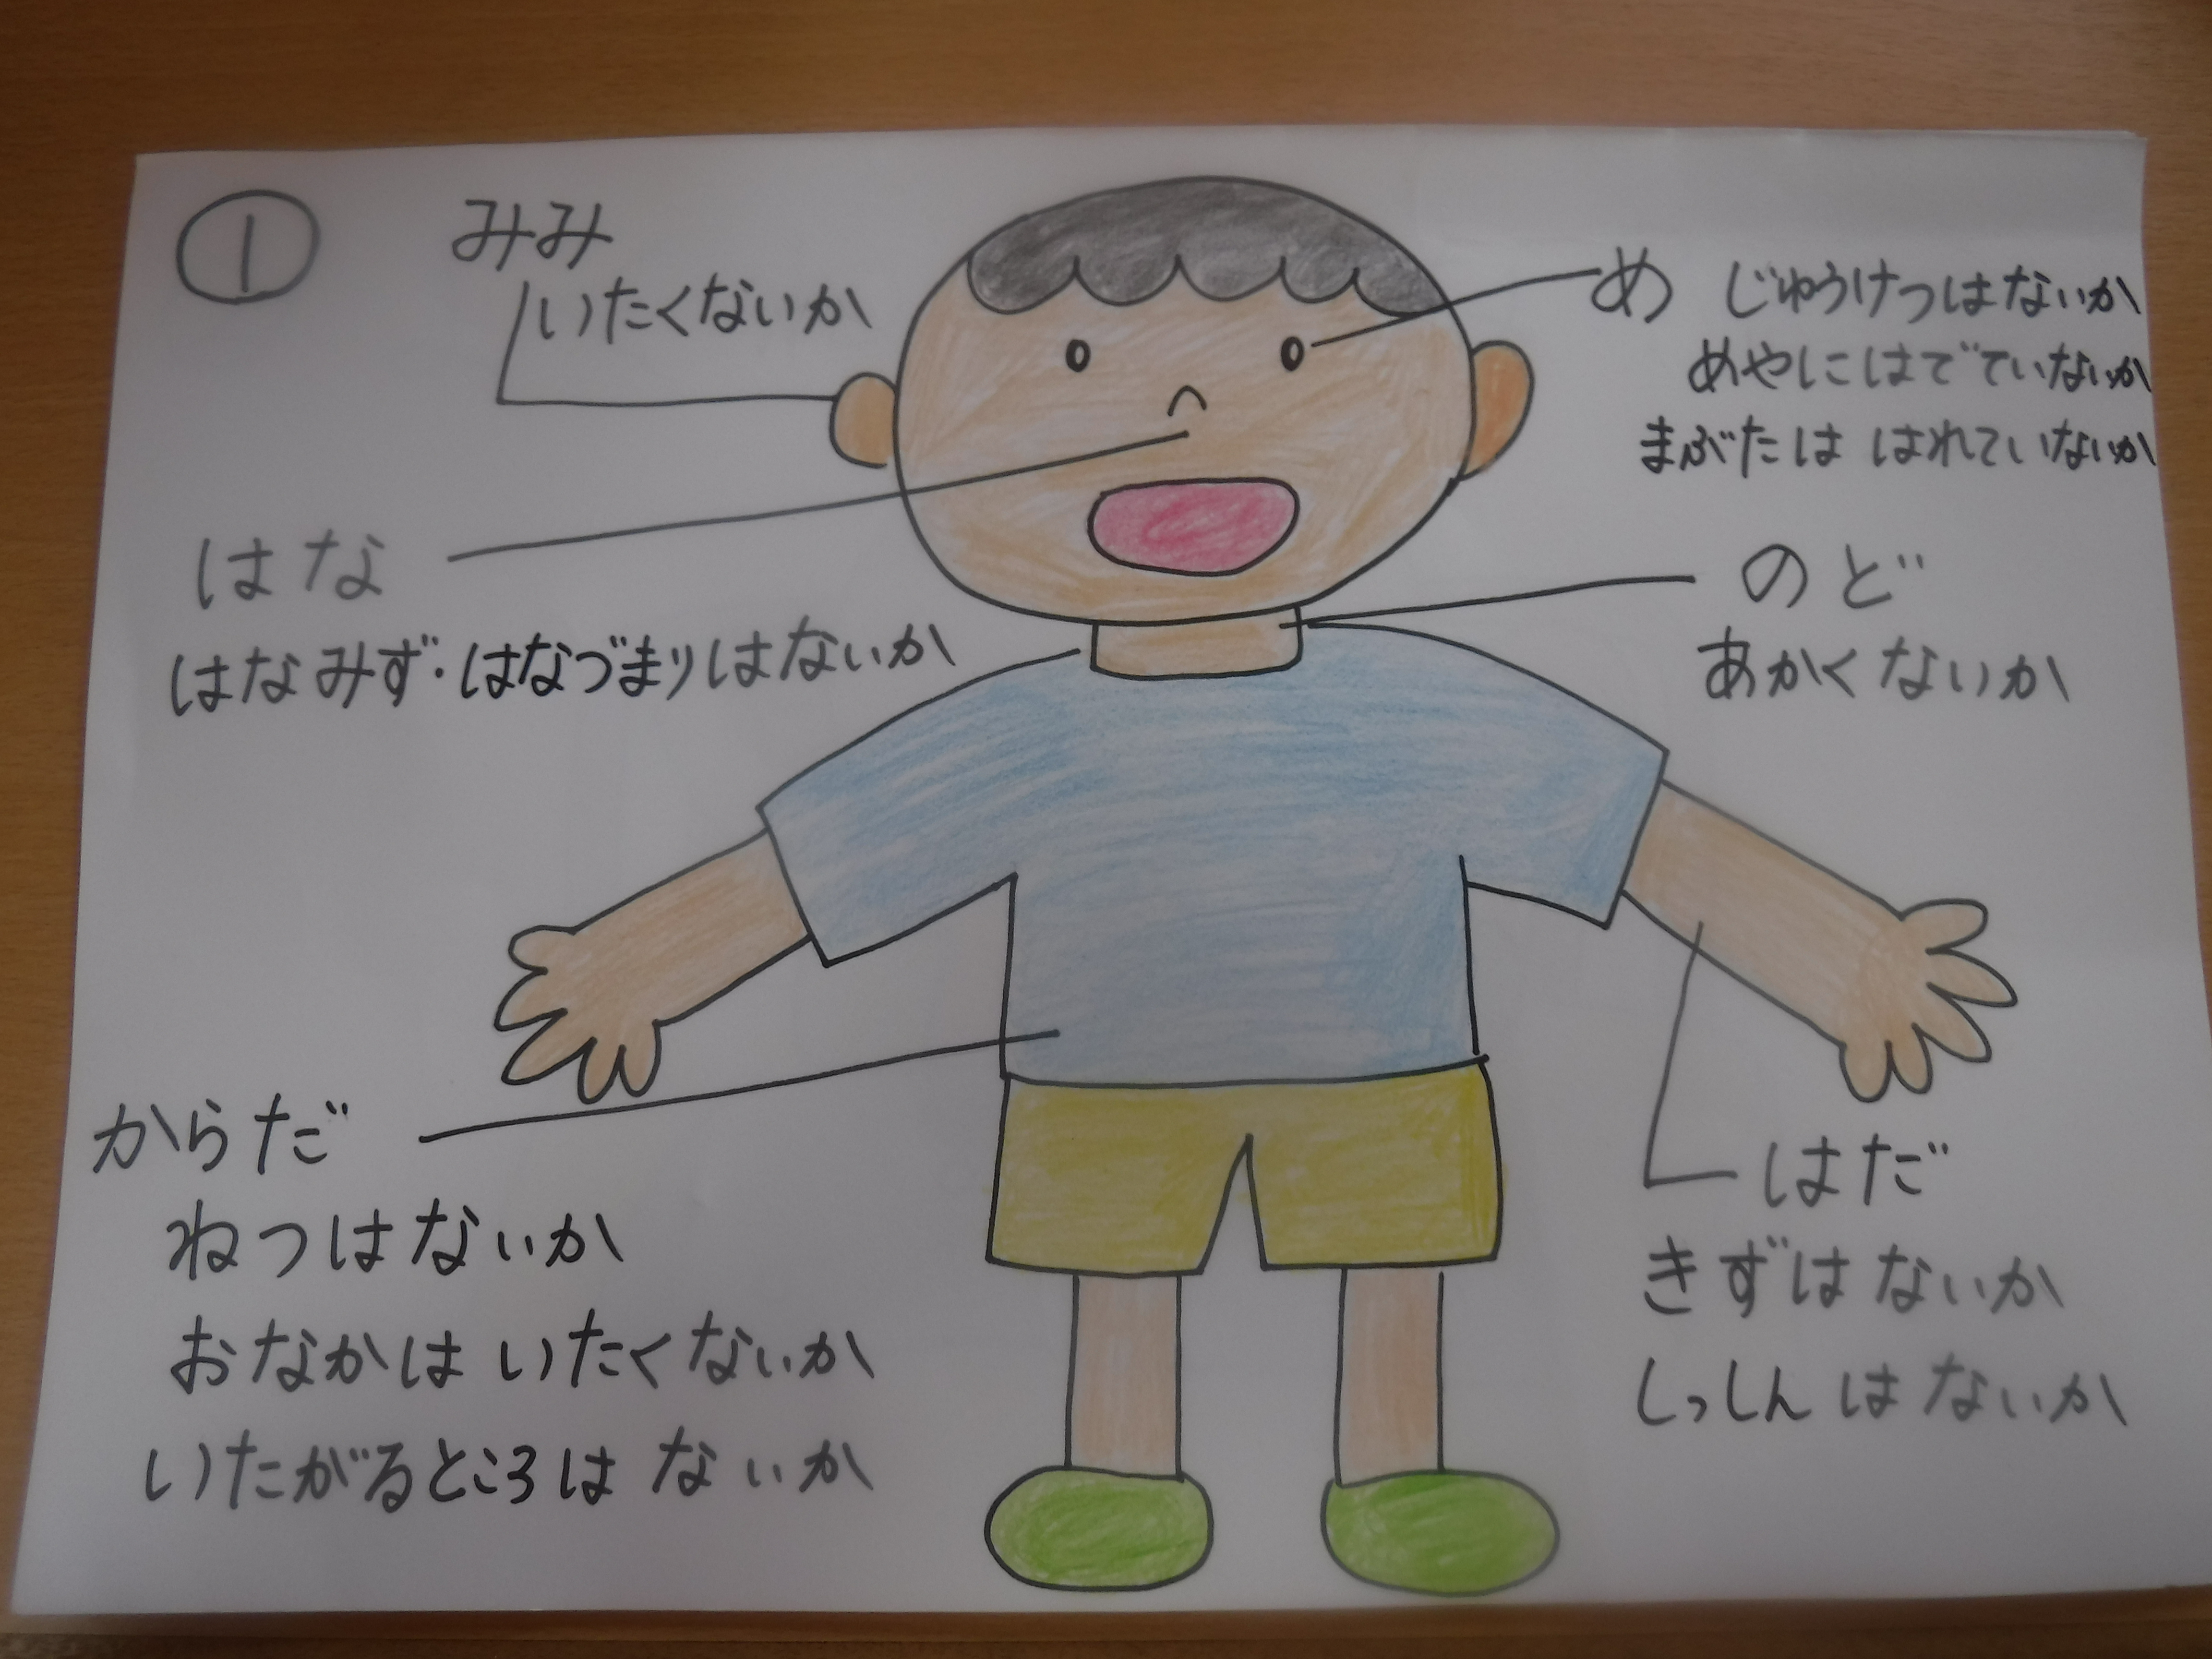 ①
みみ
いたくないか
め じゅうけつはないか
めやにはでていないか
まぶたは はれていないか
はな
はなみず・はなづまりはないか
のど
あかくないか
からだ
ねつはないか
おなかは いたくないか
いたがるところは ないか
はだ
きずはないか
しっしんはないか